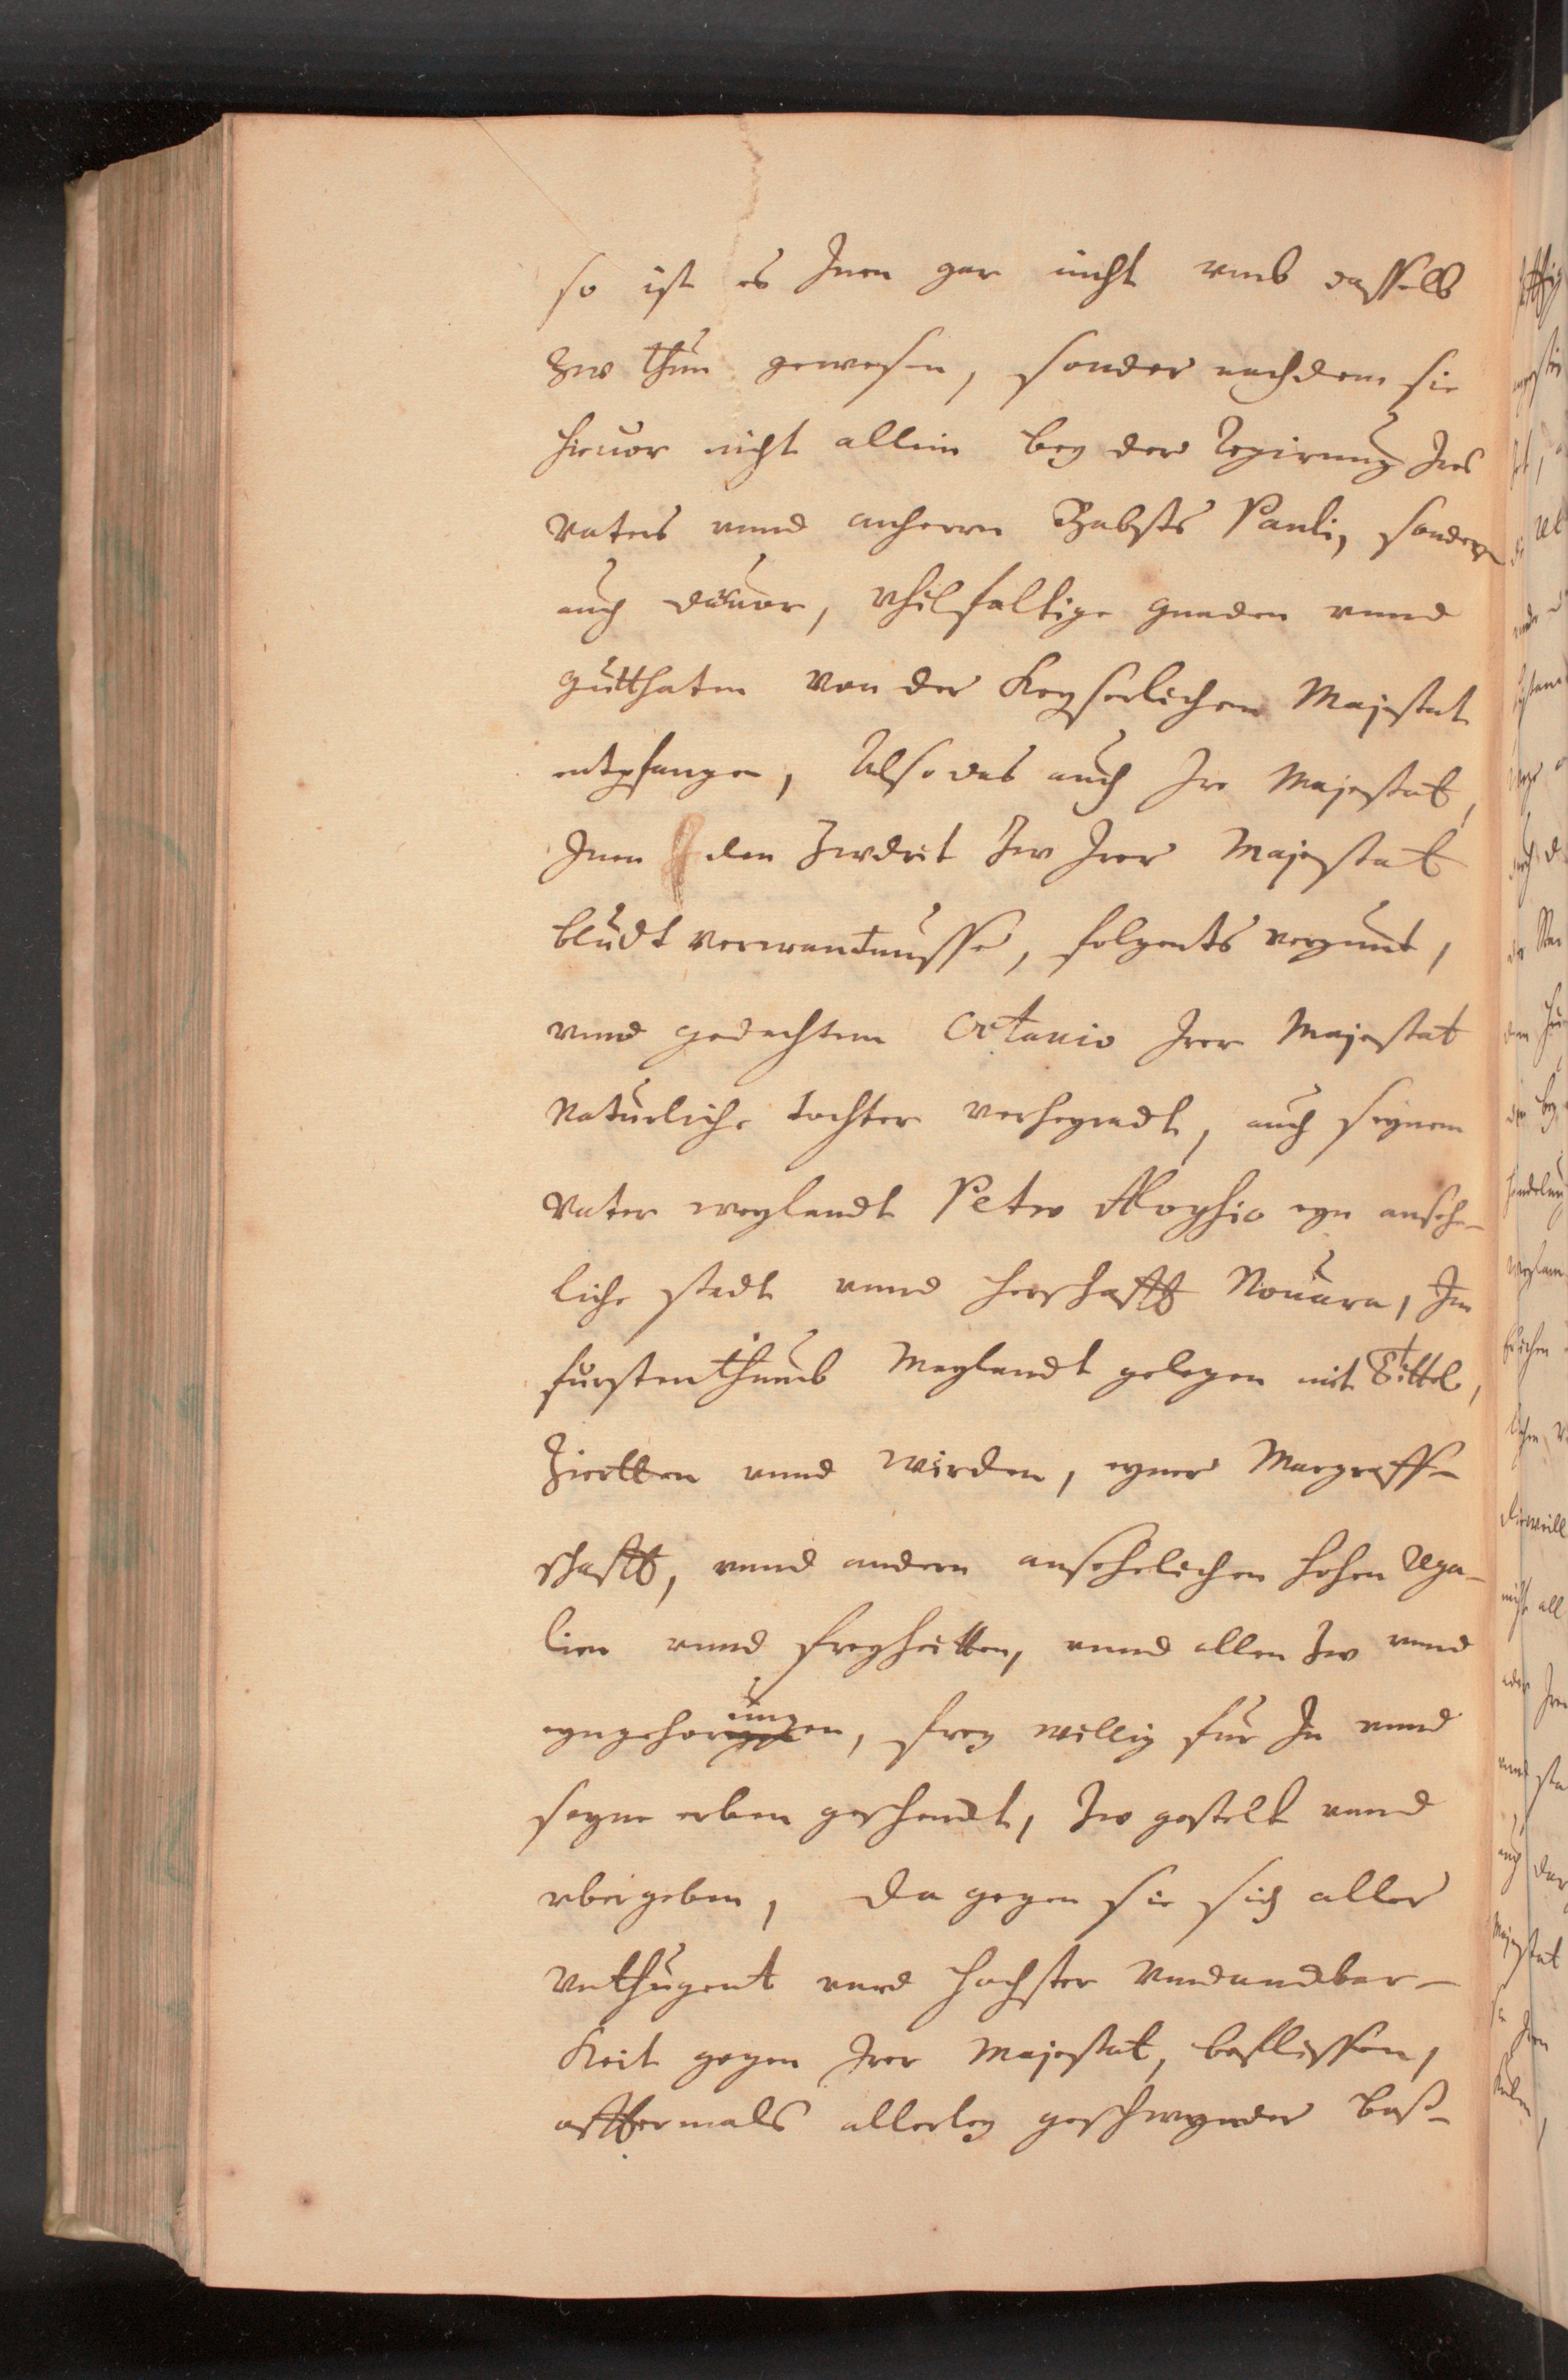 so ist es Inen gar nicht vmb dasselb
Zw thun gewesen, sonder nachdem sie
hieuor nicht allein bey der Regirung Ires
vaters vnnd anherrn Babsts Pauli, sondern
auch dauor, vhilfaltige gnaden vnnd
gutthaten von der Keyserlichen Majestat
entpfangen, Also das auch Ire Majestat,
Inen den Zwdrit Zw Irer Majestat
bludt verwantnusse, folgents vergunt,
vnnd gedachtem Octauio Irer Majestat
Naturliche tochter verheyradt, auch seynem
Vater weylandt Petro Aloysio eyn ansehe-
liche stadt vnnd herschafft Nouara, Im
furstenthumb Meylandt gelegen mit Tittel,
Zierlten vnnd wirden, eyner Margraff-
schafft, vnnd andern ansehelichen hohen Rega-
lien vnnd freyheitten, vnnd allen Zw vnnd
eyngehorungen, frey willig fur In vnnd
seyne erben geschenckt, Zw gestelt vnnd
vbergeben, Da gegen sie sich aller
vnthugent vnnd hochster vndanckbar-
keit gegen Irer Majestat, beflissen,
offtermals allerley geschwynder boß-